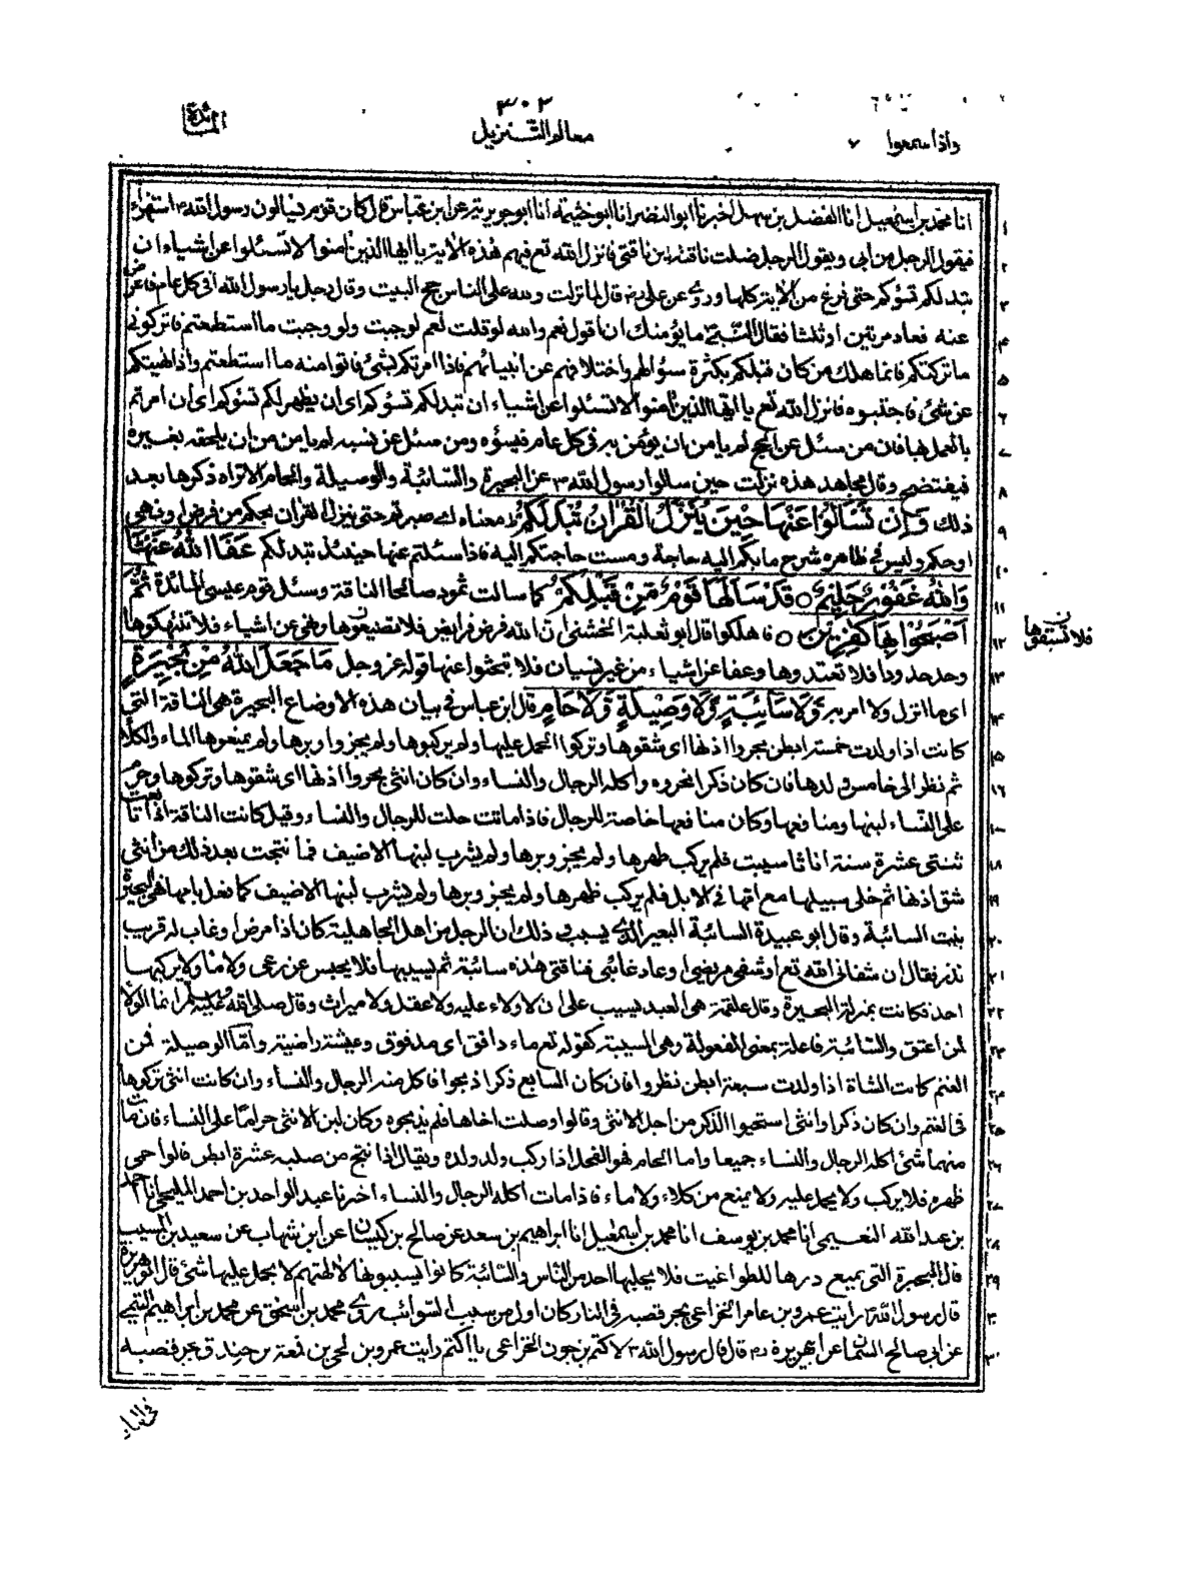 ٣٠٢
واذا سمعوا ٧
معالم التنزيل
المائدة
انا محمد بن اسمعيل انا الفضل بن سهل اخبرنا ابو النضر انا ابو خيثمة انا ابو جويرية عن ابن عباس قال كان قوم يسألون رسول الله ؐ استهزاء
فيقول الرجل من ابى ويقول الرجل ضلت ناقته اين ناقتى فانزل الله تع فيهم هذه الاية يا ايها الذين امنوا لا تسئلوا عن اشياء ان
تبد لكم تسؤكم حتى فرغ من الاية كلها وروى عن على رض قال لما نزلت ولله على الناس حج البيت وقال رجل يا رسول الله افى كل عام فاعرض
عنه فعاد مرتين او ثلثا فقال النبى ما يؤمنك ان اقول نعم والله لو قلت نعم لوجبت ولو وجبت ما استطعتم فاتركونى
ما تركتكم فانما هلك من كان قبلكم بكثرة سؤالهم واختلافهم عن انبيائهم فاذا امرتكم بشئ فاتوا منه ما استطعتم واذا نهيتكم
عن شئ فاجتنبوه فانزل الله تع يا ايها الذين امنوا لا تسئلوا عن اشياء ان تبد لكم تسؤكم اى ان يظهر لكم تسؤكم اى ان امرتم
بالعمل بها فان من سئل عن الحج لم يامن ان يؤمر به فى كل عام فيسؤه ومن سئل عن نسبه لم يامن من ان يلحقه بغيره
فيفتضح وقال مجاهد هذه نزلت حين سالوا رسول الله ؐ عن البحيرة والسائبة والوصيلة والحام الا تراه ذكرها بعد
ذلك وَاِنْ تَسْاَلُوْا عَنْهَا حِيْنَ يُنَزَّلُ الْقُرْاٰنُ تُبْدَ لَكُمْ معناه اى صبرتم حتى ينزل القران بحكم من فرض او نهى
او حكم وليس فى ظاهره شرح ما بكم اليه حاجة ومست حاجتكم اليه فاذا سئلتم عنها حينئذ تبد لكم عَفَا اللّٰهُ عَنْهَا
وَاللّٰهُ غَفُوْرٌ حَلِيْمٌ ۝ قَدْ سَاَلَهَا قَوْمٌ مِّنْ قَبْلِكُمْ كما سالت ثمود صالحا الناقة وسئل قوم عيسى المائدة ثُمَّ
اَصْبَحُوْا بِهَا كٰفِرِيْنَ ۝ فاهلكوا قال ابو ثعلبة الخشنى ان الله فرض فرايض فلا تضيعوها ونهى عن اشياء فلا تنتهكوها
وحد حدودا فلا تعتدوها وعفا عن اشياء من غير نسيان فلا تبحثوا عنها قوله عز وجل مَا جَعَلَ اللّٰهُ مِنْ بَحِيْرَةٍ
اى ما انزل ولا امر به وَّلَا سَآئِبَةٍ وَّلَا وَصِيْلَةٍ وَّلَا حَامٍ قال ابن عباس فى بيان هذه الاوضاع البحيرة هى الناقة التى
كانت اذا ولدت خمسة ابطن بحروا اذنها اى شقوها وتركوا الحمل عليها ولم يركبوها ولم يجزوا وبرها ولم يمنعوها الماء والكلأ
ثم نظر الى خامس ولدها فان كان ذكرا نحروه واكله الرجال والنساء وان كان انثى بحروا اذنها اى شقوها وتركوها وحرم
على النساء لبنها ومنافعها وكان منافعها خاصة للرجال فاذا ماتت حلت للرجال والنساء وقيل كانت الناقة اذا تابعت
ثنتى عشرة سنة اناثا سيبت فلم يركب ظهرها ولم يجز وبرها ولم يشرب لبنها الا ضيف فما نتجت بعد ذلك من انثى
شق اذنها ثم خلى سبيلها مع امها فى الابل فلم يركب ظهرها ولم يجز وبرها ولم يشرب لبنها الا ضيف كما فعل بامها فهى البحيرة
بنت السائبة وقال ابو عبيدة السائبة البعير الذى يسيب وذلك ان الرجل من اهل الجاهلية كان اذا مرض او غاب له قريب
نذر فقال ان شفانى الله تع او شفى مريضى او عاد غائبى فناقتى هذه سائبة ثم يسيبها فلا يحبس عن رعى ولا ماء ولا يركبها
احد فكانت بمنزلة البحيرة وقال علقمة هى العبد يسيب على ان لا ولاء عليه ولا عقل ولا ميراث وقال صلى الله عليه وسلم انما الولاء
لمن اعتق والسائبة فاعلة بمعنى المفعولة وهى المسيبة كقوله تع ماء دافق اى مدفوق وعيشة راضية واما الوصيلة فمن
الغنم كانت الشاة اذا ولدت سبعة ابطن نظروا فان كان السابع ذكرا ذبحوا فاكل منه الرجال والنساء وان كانت انثى تركوها
فى الغنم وان كان ذكرا وانثى استحيوا الذكر من اجل الانثى وقالوا وصلت اخاها فلم يذبحوه وكان لبن الانثى حراما على النساء فان مات
منهما شئ اكله الرجال والنساء جميعا واما الحام فهو الفحل اذا ركب ولد ولده ويقال اذا نتج من صلبه عشرة ابطن قالوا حمى
ظهره فلا يركب ولا يحمل عليه ولا يمنع من كلاء ولا ماء فاذا مات اكله الرجال والنساء اخبرنا عبد الواحد بن احمد المليحى انا احمد
بن عبد الله النعيمى انا محمد بن يوسف انا محمد بن اسمعيل انا ابراهيم بن سعد عن صالح بن كيسان عن ابن شهاب عن سعيد بن المسيب
قال البحيرة التى يمنع درها للطواغيت فلا يحلبها احد من الناس والسائبة كانوا يسيبونها لالهتهم لا يحمل عليها شئ قال ابو هريرة
قال رسول الله ؐ رايت عمرو بن عامر الخزاعى يجر قصبه فى النار كان اول من سيب السوائب روى محمد بن اسحق عن محمد بن ابراهيم التيمى
عن ابى صالح السمان عن ابى هريرة رض قال قال رسول الله ؐ لاكثم بن جون الخزاعى يا اكثم رايت عمرو بن لحى بن قمعة بن خندق يجر قصبه
فى النار